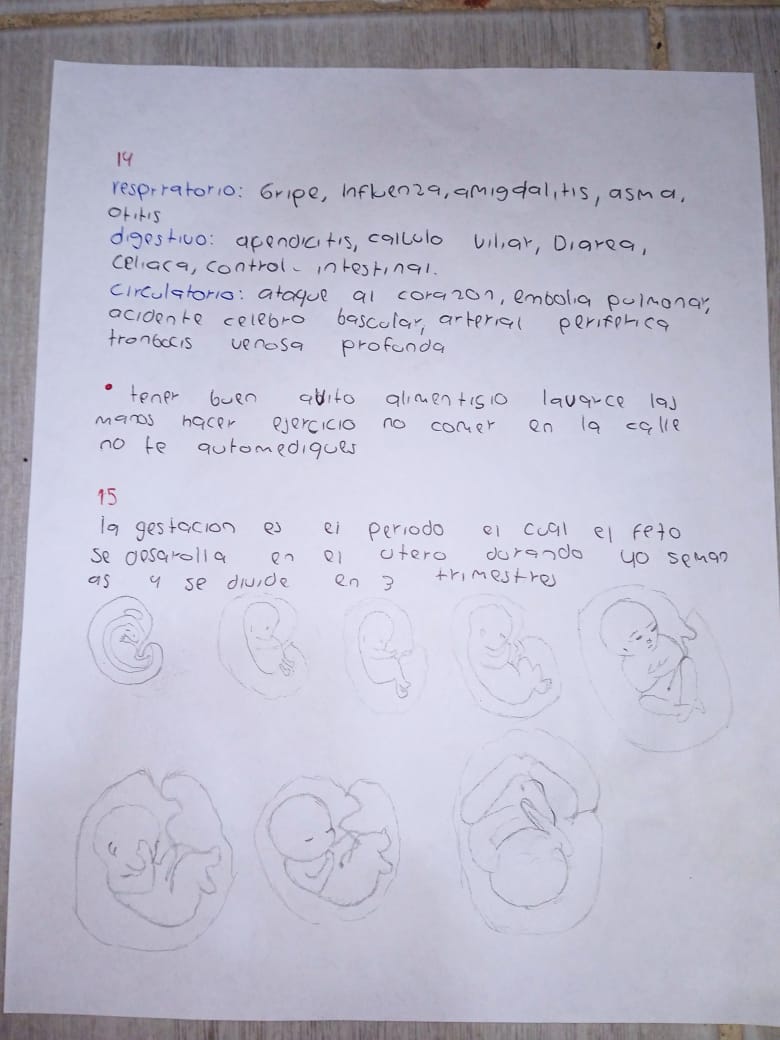 14
respiratorio: Gripe, Influenza, amigdalitis, asma,
otitis
digestivo: apendicitis, calculo viliar, Diarea,
celiaca, control - intestinal.
circulatorio: ataque al corazon, embolia pulmonar,
acidente celebro bascular, arterial periferica
trombocis venosa profunda
• tener buen avito alimentisio lavarce las
manos hacer ejercicio no comer en la calle
no te automediques
15
la gestacion es el periodo el cual el feto
se desarolla en el utero durando 40 seman
as y se divide en 3 trimestres